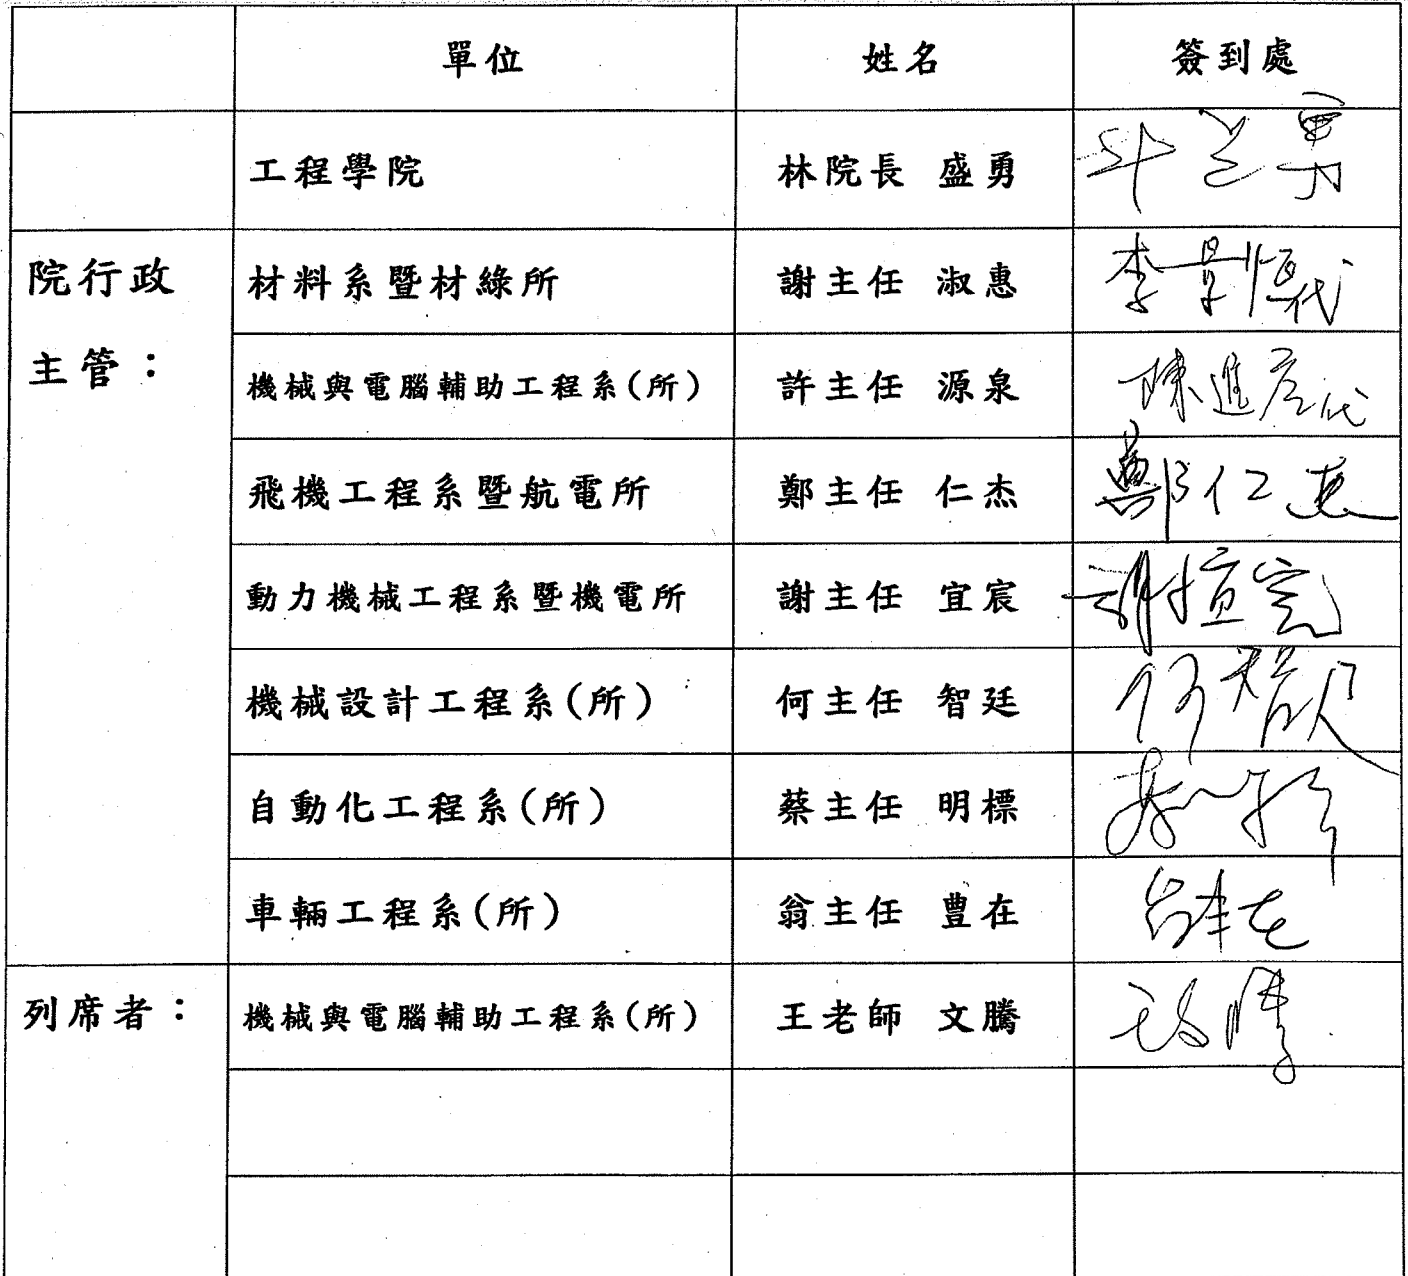 單位 姓名 簽到處
工程學院 林院長 盛勇
院行政 材料系暨材綠所 謝主任 淑惠 李景恆代
主管： 機械與電腦輔助工程系(所) 許主任 源泉 陳進彥代
飛機工程系暨航電所 鄭主任 仁杰 鄭仁杰
動力機械工程系暨機電所 謝主任 宜宸
機械設計工程系(所) 何主任 智廷
自動化工程系(所) 蔡主任 明標
車輛工程系(所) 翁主任 豊在
列席者： 機械與電腦輔助工程系(所) 王老師 文騰